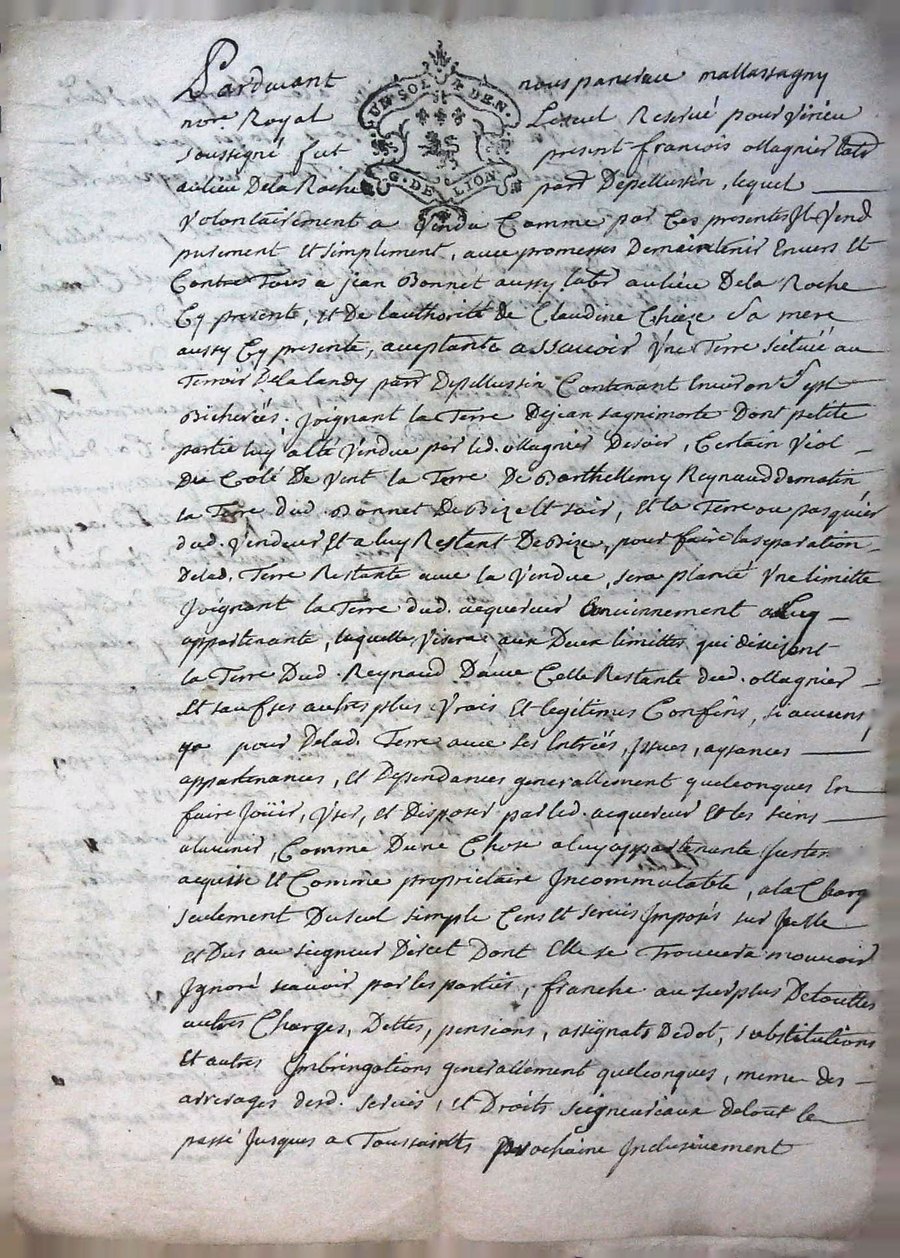 Pardevant nous pancrace mallassagny
UN SOL 4 DEN.
G. DE LION
nore. Royal Le seul Reservé pour Virieu
soussigné fut present françois ollagnier labr
au lieu De la Roche parr Depellussin, lequel
Volontairement a Vendu Comme par Ces presentes Il Vend
purement Et simplement, avec promesses De maintenir Envers Et
Contre Tous a jean Bonnet aussy labr au lieu De la Roche
Cy presente, et De l'authorité de Claudine Chieze Sa mere
aussy Cy presente, acceptante assavoir Une Terre scituée au
Terroir De la landy parr Depellussin Contenant Environ Sept
Bicherées, Joignant la Terre De jean sagnimorte Dont petite
partie luy a été Vendue par led. ollagnier De soir, Certain Viol
Du Coté De Vent la Terre De Barthellemy Reynaud De matin,
la Terre dud. Bonnet De Bize Et soir, Et la Terre ou pasquier
dud. Vendeur Et a luy Restant De Bize, pour faire la separation
De lad. Terre Restante avec la Vendue, sera planté Une limitte
Joignant la Terre dud. acquereur anciennement a luy
appartenante, laquelle Visera aux Deux limittes qui divisent
la Terre Dud. Reynaud D'avec Celle Restante dud. ollagnier
Et sauf ses autres plus Vrais Et legitimes Confins, si aucuns
pour De lad. Terre avec ses Entrées, Issues, aysances
appartenances, Et Dependances generallement quelconques En
faire Joüir, User, Et Disposer par led. acquereur Et les siens
a l'avenir, Comme D'une Chose a luy appartenante Juster
acquise Et Comme proprietaire Incommutable, a la Charg
seulement Du seul simple Cens Et servis Imposés sur Jcelle
et Dus au seigneur Direct Dont Elle se Trouvera mouvoir
Ignoré scavoir par les parties, franche au surplus De touttes
autres Charges, Dettes, pensions, assignats De dot, substitutions
Et autres Imbringations generallement quelconques, meme des
arrerages desd. servis, et Droits seigneuriaux de tout le
passé Jusques a Toussaints prochaine Inclusivement